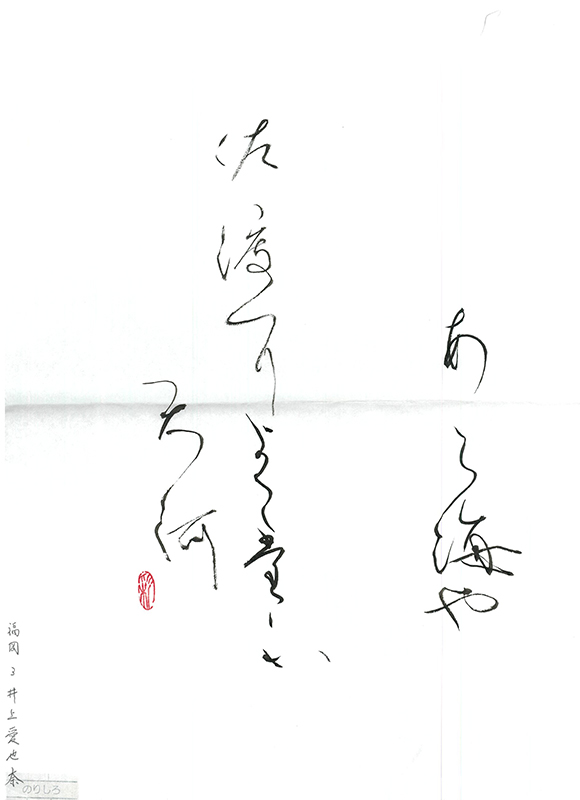 あら海や
佐渡耳よこ堂ふ
天河
福岡 3 井上愛也奈
のりしろ